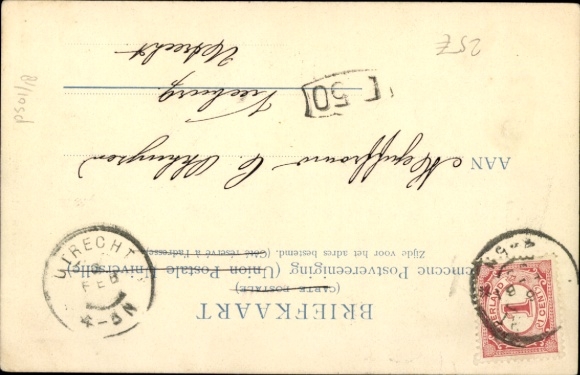 BRIEFKAART
(CARTE POSTALE)
Algemeene Postvereeniging (Union Postale Universelle)
Zijde voor het adres bestemd. (Côté réservé à l'adresse)
AAN Mejuffrouw C.
Vreeburg
Utrecht
50
UTRECHT
FEB
4-8N
NEDERLAND
1
CENT
25Z